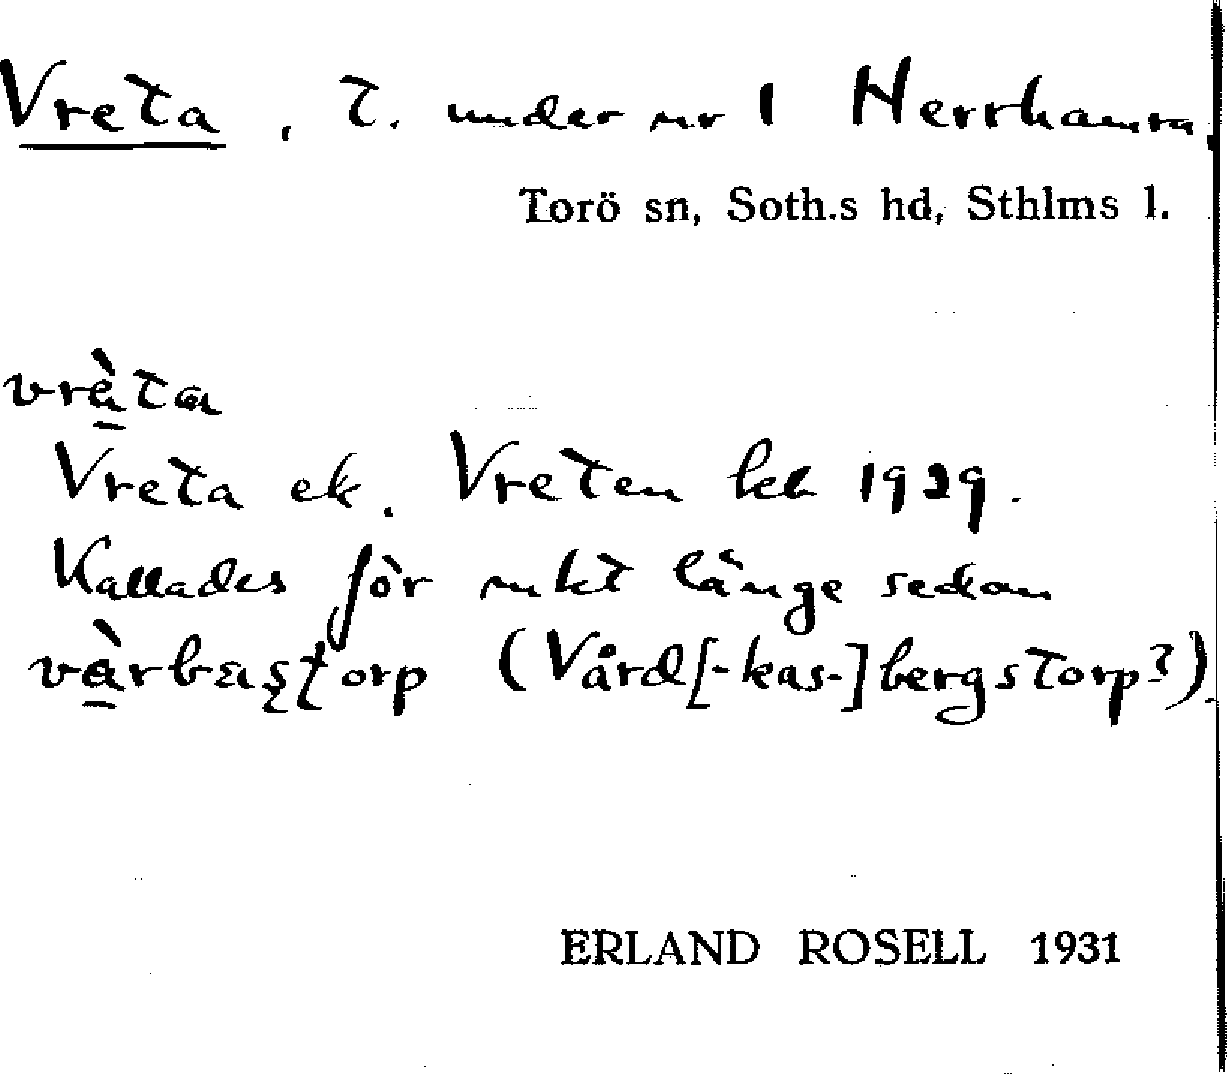 Vreta, t. under nr 1 Herrhamra.
Torö sn, Soth.s hd, Sthlms l.
vrèta
Vreta ek. Vreten kbl 1929.
Kallades för mkt länge sedan
vàrbæstorp (Vård[-kas-]bergstorp?).
ERLAND ROSELL 1931